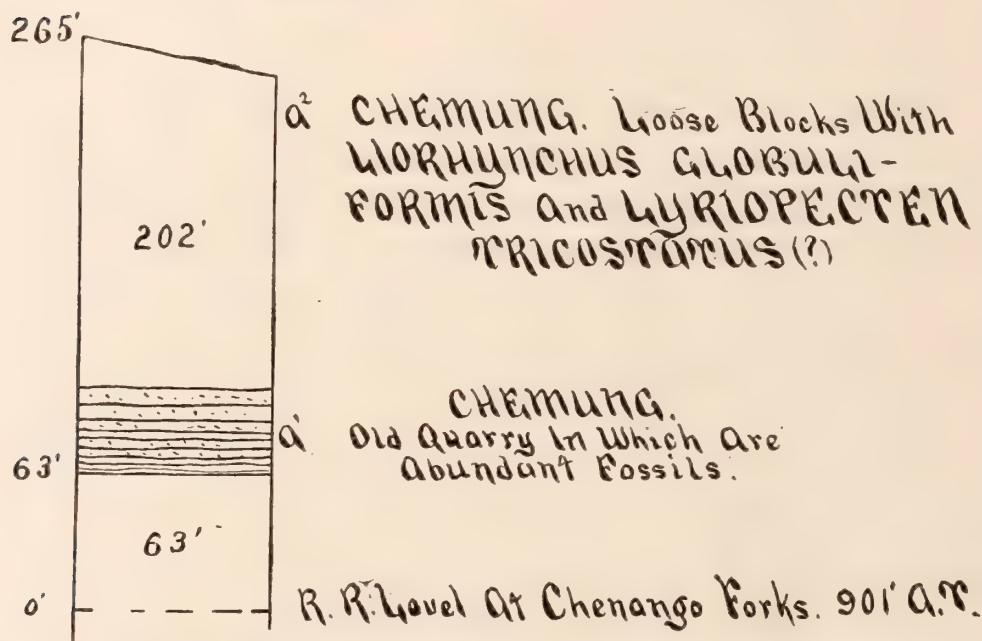 265'
a² CHEMUNG. Loose Blocks With
LIORHYNCHUS GLOBULI-
FORMIS and LYRIOPECTEN
TRICOSTATUS (?)
202'
CHEMUNG.
a¹ Old Quarry In Which Are
Abundant Fossils.
63'
63'
0' R. R. Level At Chenango Forks. 901' A.T.